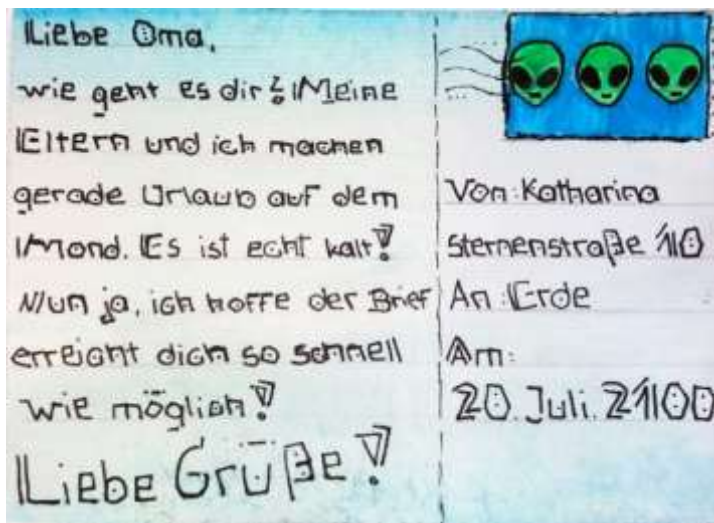 Liebe Oma,
wie geht es dir? Meine
Eltern und ich machen
gerade Urlaub auf dem
Mond. Es ist echt kalt!
Nun ja, ich hoffe der Brief
erreicht dich so schnell
wie möglich!
Liebe Grüße!
Von: Katharina
Sternenstraße 10
An: Erde
Am:
20. Juli. 2100